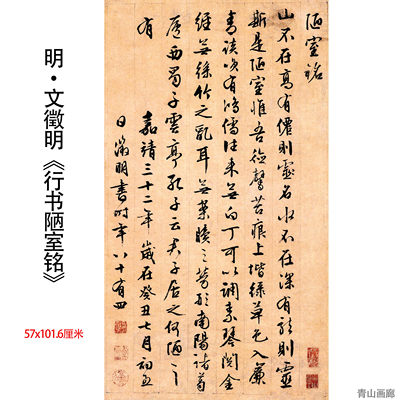 明·文徵明《行书陋室铭》
57x101.6厘米
陋室銘
山不在高有僊則名水不在深有龍則靈
斯是陋室惟吾德馨苔痕上堦緑草色入簾
青談咲有鴻儒往来無白丁可以調素琴閲金
經無絲竹之亂耳無案牘之勞形南陽諸葛
廬西蜀子雲亭孔子云夫子居之何陋之
有
嘉靖三十二年歲在癸丑七月初五
日徵明書時年八十有四
青山画廊